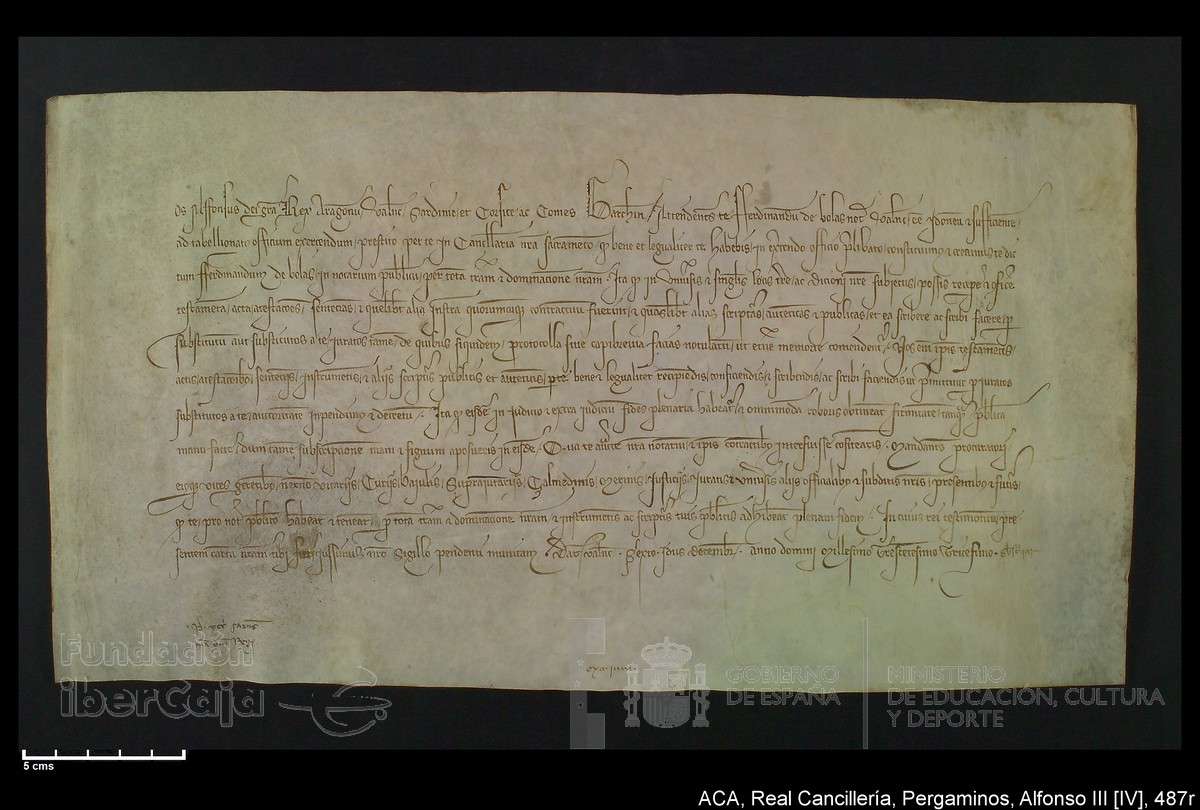 os Alffonsus dei gra Rex Aragonu, Valnc, Sardinie, et Corsice, ac Comes Barchin, Attendentes te Fferdinandu de bolas not Valnc, ee ydoneu & sufficiente,
ad tabellionat officium exercendum, prestito per te in Cancellaria nra sacrameto q bene et legualiter te habebis, in exercendo officio prelibato, constituimus & creamus te dic
tum fferdinandum de bolas, in notarium publicu, per tota tram & dominatione nram. Ita q in Universis & singlis locis tre, ac dicioni nre subiectis, possis recipe & conficere
testameta, acta, atestacoes, sentecias, & quelibt alia instra quorumcumq contractuu fuerint, & quaslibt alias scripturas, autenticas & publicas, et ea scribere ac scribi facere, per
substitutu aut substitutos a te iuratos tame, de quibus siquidem prothocolla sive capibrevia facias notularu, ut eterne memorie comendent. Nos eni ipis testametis,
actis, atestacoibo, sentecijs, instrumetis, & alijs scripturis publicis et autenticis, per te bene & legualiter recipiedis, conficendis, & scribendis, ac scribi faciendis ut premititur per iuratos
substitutos a te, auctoritate inpendimus & decretu. Ita q eisdem in iudicio & extra iudiciu fides plenaria habeatur, & omnimoda roboris obtineat firmitate tanq publica
manu facte, dum tame subscripcione tuam & signum aposueris in eisde. Qua te aucte nra notariu, & ipis contractibo interfuisse costiterit. Mandantes procuratori
eiusq vices gerentibo, necno vicarijs, Curijs, baiulis, Supraiuntarijs, Calmedinis, Merinis, Iusticijs, Iuratis & universis alijs officialibo & subditis nris, presentibo & futuris,
q te, pro noto publico habeant & teneant, per tota tram & dominatione nram, & instrumetis ac scripturis tuis publicis adhibeant plenam fidem. In cuius rei testimonium pre
sentem carta nram tibi fieri iussimus, nro Sigillo pendenti munitam. Dat Valnc. Sexto idus Decembr. anno domini Millesimo Trescentesimo Tricesimo.
Fundación
iberCaja
GOBIERNO
DE ESPAÑA
MINISTERIO
DE EDUCACIÓN, CULTURA
Y DEPORTE
5 cms
ACA, Real Cancillería, Pergaminos, Alfonso III [IV], 487r